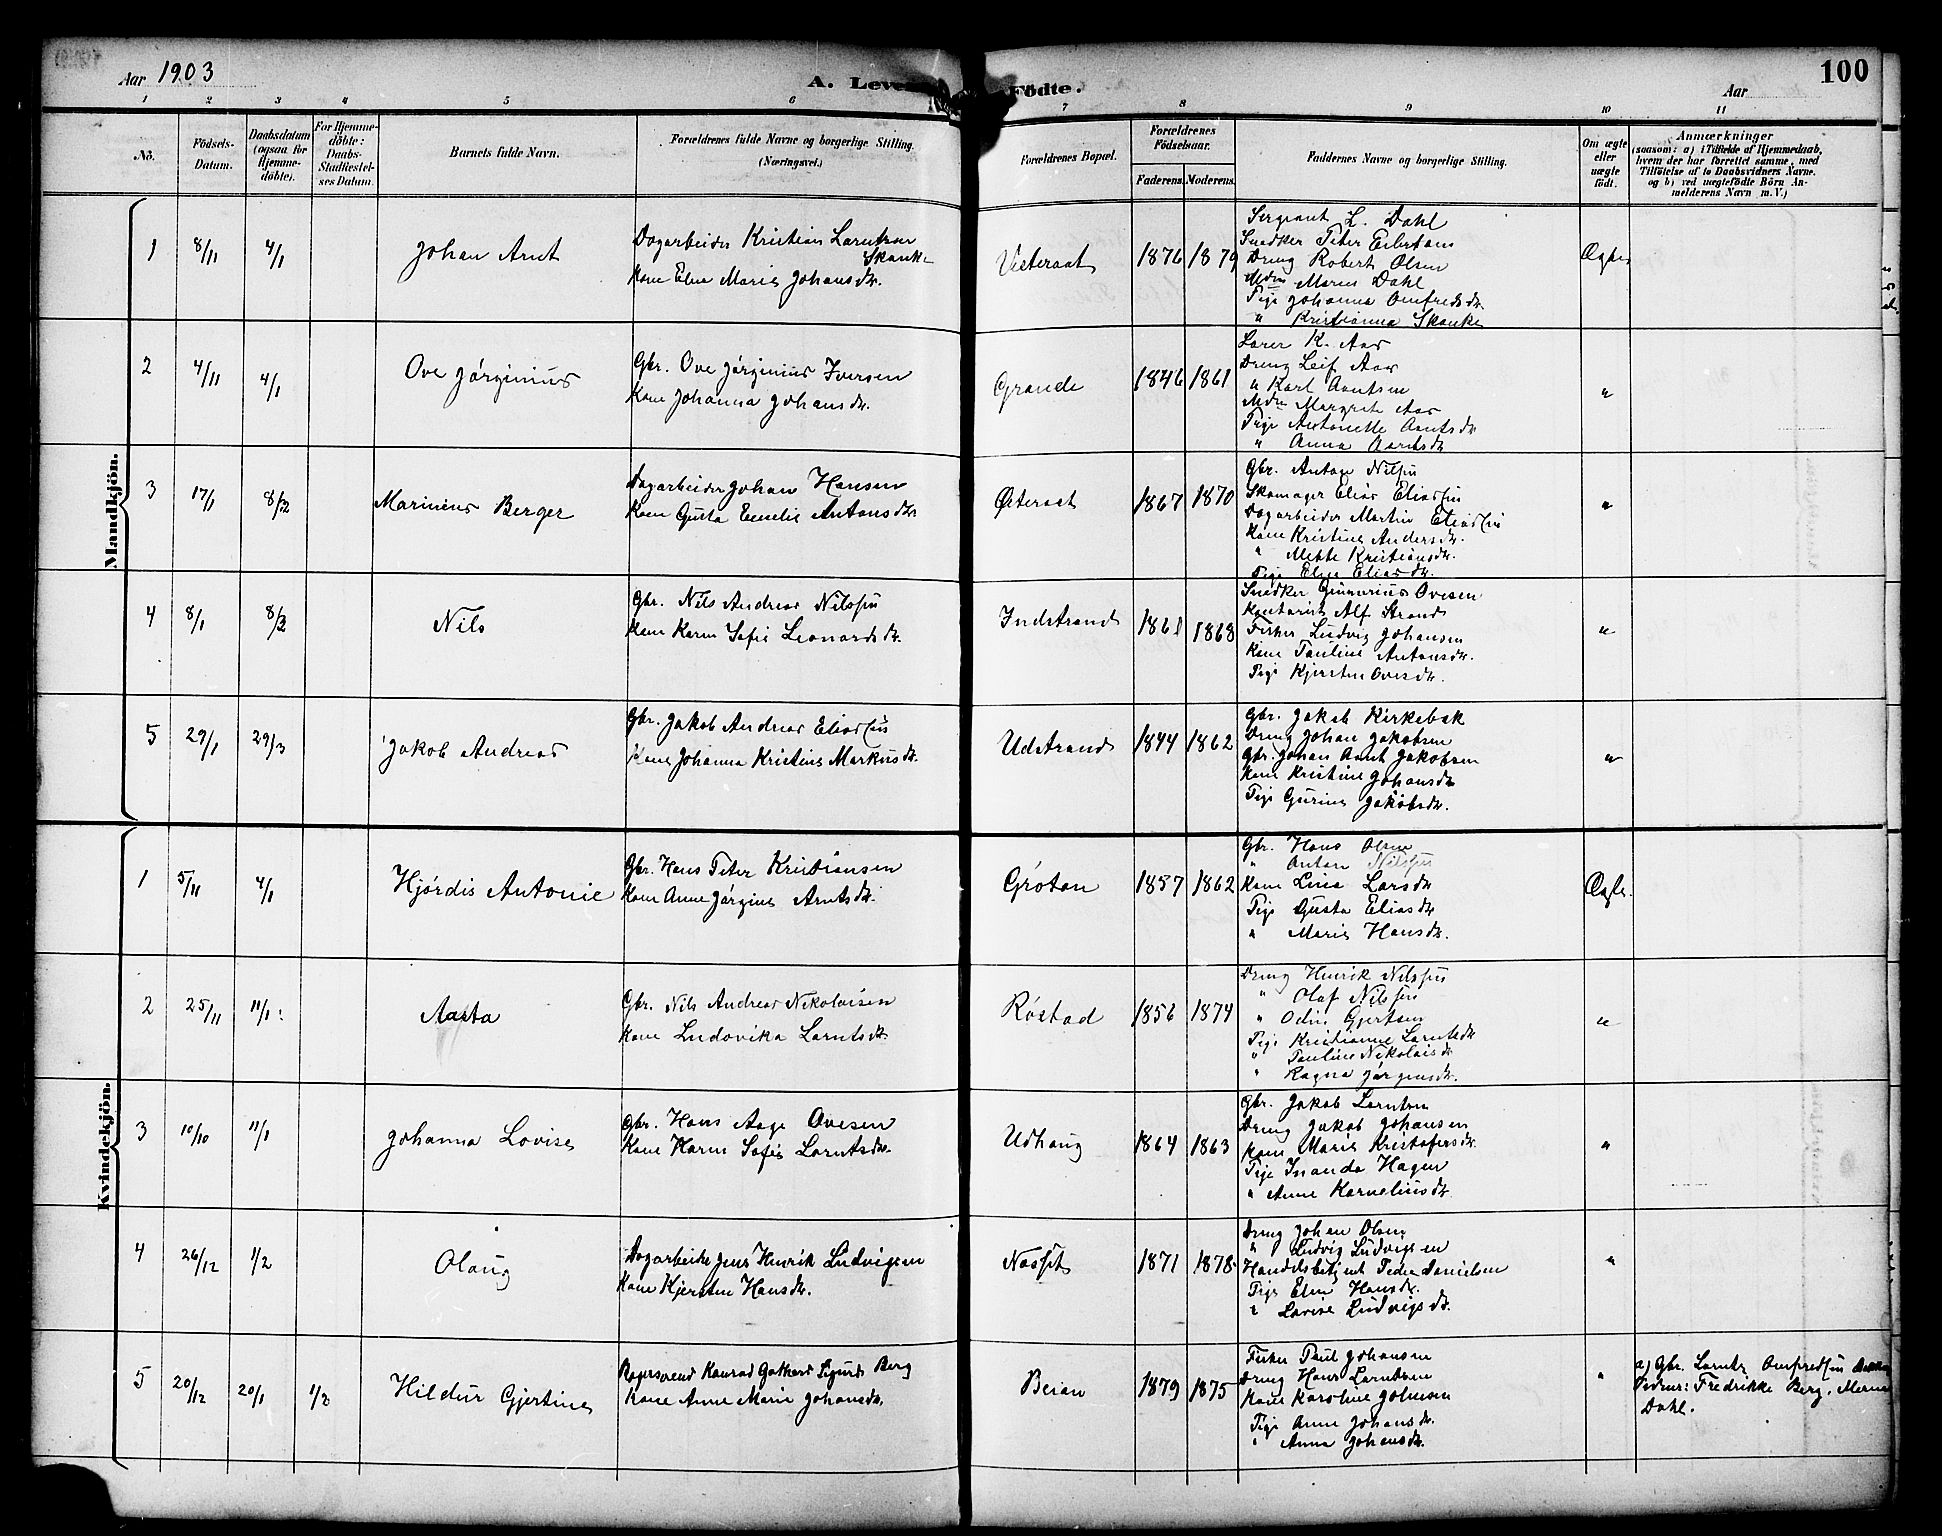 Aar 1903
A. Leve
Födte.
Aar
100
1 2 3 4 5 6 7 8 9 10 11
No.
Födsels-
Datum.
Daabsdatum
(ogsaa for
Hjemme-
döbte).
For Hjemme-
döbte:
Daabs-
Stadfæstel-
ses Datum.
Barnets fulde Navn.
Forældrenes fulde Navne og borgerlige Stilling.
(Næringsvei.)
Forældrenes Bopæl.
Forældrenes
Födselsaar.
Faderens. Moderens.
Faddernes Navne og borgerlige Stilling.
Om ægte
eller
uægte
födt.
Anmærkninger
(saasom: a) i Tilfælde af Hjemmedaab,
hvem der har forrettet samme, med
Tilföielse af to Daabsvidners Navne.
og b) ved uægtefödte Börn An-
melderens Navn m.V.)
Mandkjön.
1 8/11 4/1 Johan Arnt
Dagarbeider Kristian Larntsen
Skanke
Kone Elen Marie Johansdtr.
Vesteraat 1876 1879
Sergeant L. Dahl
Snedker Peter Eilertsen
Dreng Robert Olsen
Mdm Maren Dahl
Pige Johanna Omfredsdtr.
" Kristianna Skanke
Ægte
2 4/11 4/1 Ove Jørginius
Gbr. Ove Jørginius Iversen
Kone Johanna Johansdtr.
Grande 1846 1861
Lærer K. Aas
Dreng Leif Aas
" Karl Arntsen
Mdm Margrete Aas
Pige Antonette Arntsdtr
" Anna Arntsdtr
"
3 17/1 8/3 Marinius Berger
Dagarbeider Johan Hansen
Kone Gusta Emelie Antonsdtr.
Østeraat 1867 1870
Gbr. Anton Nilssen
Skomager Elias Eliassen
Dagarbeider Martin Eliassen
Kone Kristine Andersdtr.
" Mette Kristiansdtr.
Pige Elen Eliasdtr.
"
4 8/1 8/3 Nils
Gbr. Nils Andreas Nilssen
Kone Karen Sofie Leonardsdtr.
Indstrand 1861 1868
Snedker Gunnerius Ovesen
Kontorist Alf Strand
Fisker Ludvig Johansen
Kone Pauline Antonsdtr.
Pige Kjersten Ovesdtr.
"
5 29/1 29/3 Jakob Andreas
Gbr. Jakob Andreas Eliassen
Kone Johanna Kristine Markusdtr.
Udstrand 1844 1862
Gbr. Jakob Kirkebak
Dreng Johan Jakobsen
Gbr. Johan Arnt Jakobsen
Kone Kristine Johansdtr
Pige Gurine Jakobsdtr.
"
Kvindekjön.
1 5/11 4/1 Hjørdis Antonie
Gbr. Hans Peter Kristiansen
Kone Anne Jørgine Arntsdtr.
Grøtan 1857 1862
Gbr. Hans Olsen
" Anton Nilssen
Kone Lina Larsdtr
Pige Gusta Eliasdtr
" Marie Hansdtr.
Ægte.
2 25/11 11/1 Aasta
Gbr. Nils Andreas Nikolaisen
Kone Ludovika Larntsdtr.
Røstad 1856 1874
Dreng Henrik Nilssen
" Olaf Nilssen
" Odin Gjertsen
Pige Kristianne Larntsdtr
" Pauline Nikolaisdtr
" Ragna Jørgensdtr.
"
3 10/10 11/1 Johanna Lovise
Gbr. Hans Aage Ovesen
Kone Karen Sofie Larntsdtr.
Udhaug 1864 1863
Gbr. Jakob Larntsen
Dreng Jakob Johansen
Kone Marie Kristofersdtr
Pige Inanda Hagen
" Anne Kornelius dtr
"
4 26/12 1/2 Olaug
Dagarbeider Jens Henrik Ludvigsen
Kone Kjersten Hansdtr.
Næsset 1871 1878
Dreng Johan Olsen
" Ludvig Ludvigsen
Handelsbetjent Peder Danielsen
Pige Elen Hansdtr.
" Lovise Ludvigsdtr.
"
5 20/12 20/1 1/2 Hildur Gjertine
Bagersvend Konrad Gothard Sigurd Berg
Kone Anne Marie Johansdtr.
Beian 1879 1875
Fisker Paul Johansen
Dreng Hans Larntsen
Kone Karoline Johnsen
Pige Anne Johansdtr.
" Anna Johansdtr.
"
a) Gbr. Larnts Omfredsen
Vidner: Fredrikke Berg, Meren
Dahl.